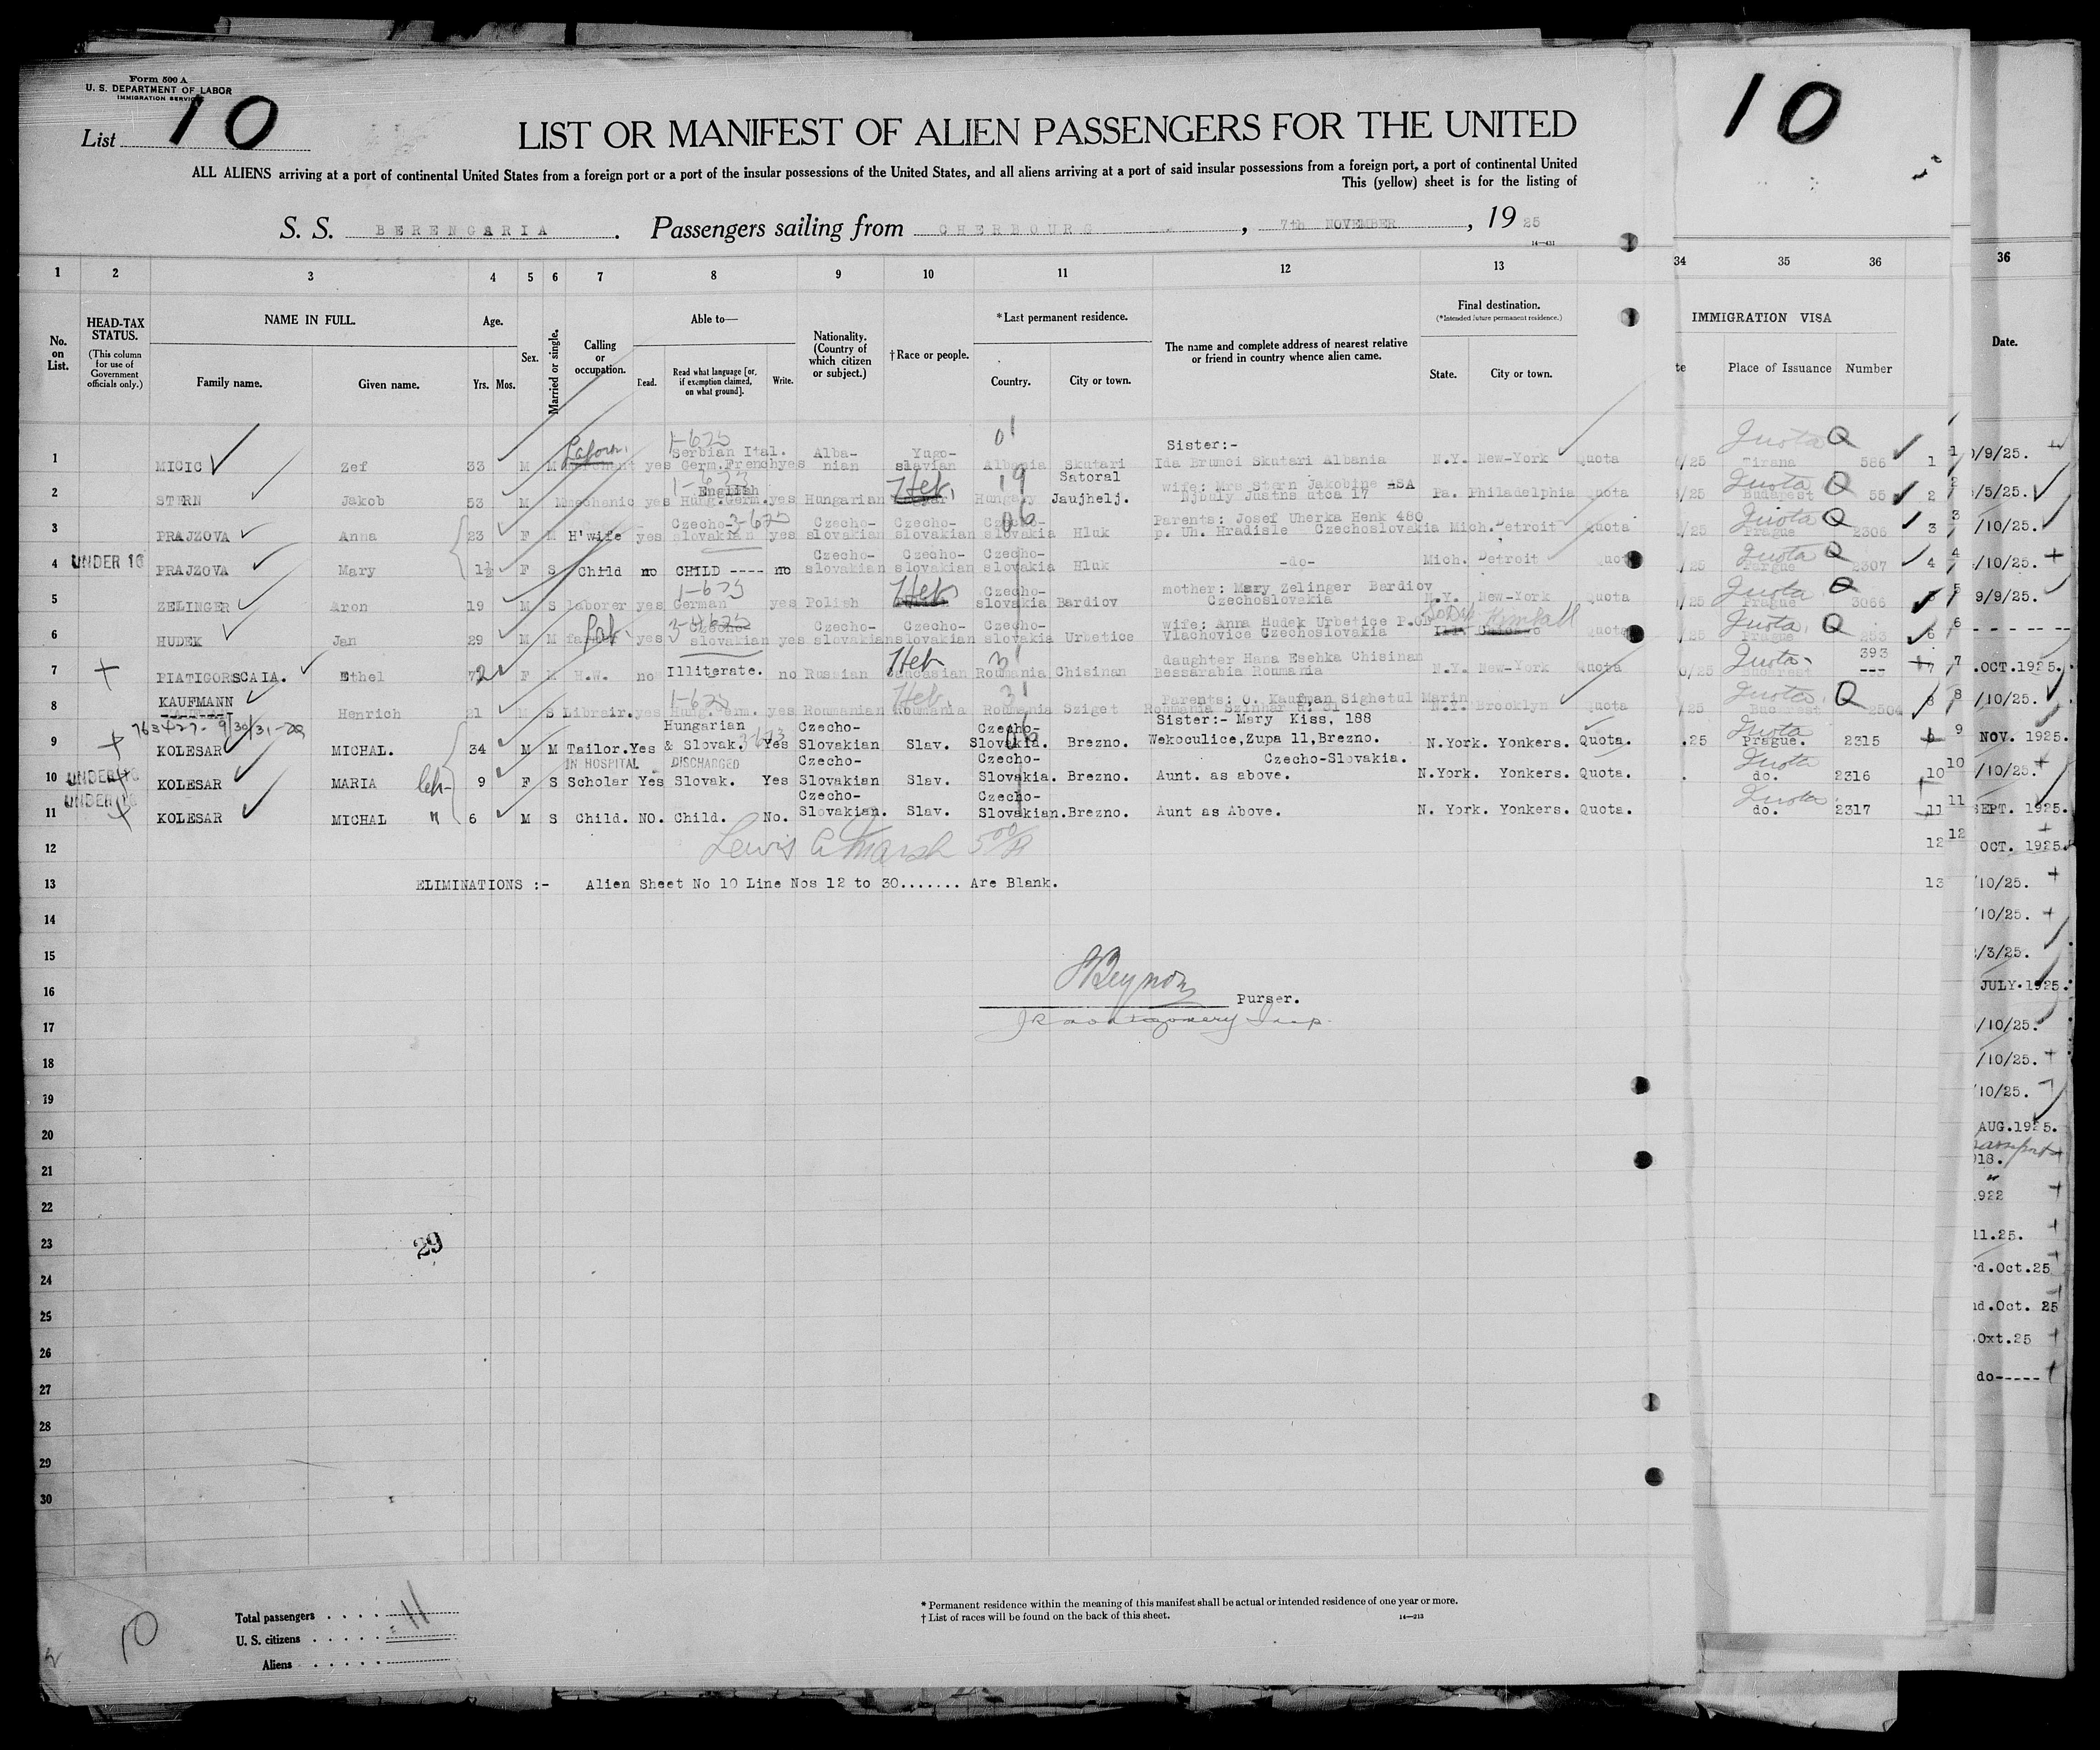 Form 500 A
U. S. DEPARTMENT OF LABOR
IMMIGRATION SERVICE
List 10
LIST OR MANIFEST OF ALIEN PASSENGERS FOR THE UNITED
ALL ALIENS arriving at a port of continental United States from a foreign port or a port of the insular possessions of the United States, and all aliens arriving at a port of said insular possessions from a foreign port, a port of continental United
This (yellow) sheet is for the listing of
S. S. BERENGARIA. Passengers sailing from CHERBOURG, 7th NOVEMBER, 1925
14—431
1 2 3 4 5 6 7 8 9 10 11 12 13
No. on List.
HEAD-TAX STATUS.
(This column for use of Government officials only.)
NAME IN FULL.
Family name. Given name.
Age.
Yrs. Mos.
Sex.
Married or single.
Calling or occupation.
Able to—
Read. Read what language [or, if exemption claimed, on what ground]. Write.
Nationality. (Country of which citizen or subject.)
†Race or people.
*Last permanent residence.
Country. City or town.
The name and complete address of nearest relative or friend in country whence alien came.
Final destination.
(*Intended future permanent residence.)
State. City or town.
1 MICIC Zef 33 M M Labour yes Serbian Ital. Germ. French yes Alba-nian Yugo-slavian Albania Skutari Sister:- Ida Brumci Skutari Albania N.Y. New-York Quota
2 STERN Jakob 53 M M mechanic yes English Hung. Germ. yes Hungarian Heb. Hungary Satoral Jaujhelj. wife: Mrs Stern Jakobine Pa. Philadelphia Quota
3 PRAJZOVA Anna 23 F M H'wife yes Czecho-slovakian yes Czecho-slovakian Czecho-slovakian Czecho-slovakia Hluk Parents: Josef Uherka Henk 480 p. Uh. Hradisle Czechoslovakia Mich. Detroit Quota
UNDER 16
4 PRAJZOVA Mary 1½ F S Child no CHILD ---- no Czecho-slovakian Czecho-slovakian Czecho-slovakia Hluk -do- Mich. Detroit Quota
5 ZELINGER Aron 19 M S laborer yes German yes Polish Heb Czecho-slovakia Bardiov mother: Mary Zelinger Bardiov Czechoslovakia N.Y. New-York Quota
6 HUDEK Jan 29 M M yes slovakian yes Czecho-slovakian Czecho-slovakian Czecho-slovakia Urbetice wife: Anna Hudek Urbetice Vlachovice Czechoslovakia Kimball Quota
7 PIATIGORSCAIA. Ethel 72 F M H.W. no Illiterate. no Russian Heb Roumania Chisinan daughter Hana Esehka Chisinau Bessarabia Roumania N.Y. New-York Quota
8 KAUFMANN Henrich 21 M S Librair. yes Hung. Germ. yes Roumanian Heb. Roumania Sziget Parents: O. Kaufman Sighetul Marin N.Y. Brooklyn Quota
763427- 9/30/31-
9 KOLESAR MICHAL. 34 M M Tailor. Yes Hungarian & Slovak. Yes Czecho-Slovakian Slav. Czecho-Slovakia. Brezno. Sister:- Mary Kiss, 188 Wekoculice, Zupa 11, Brezno. Czecho-Slovakia. N.York. Yonkers. Quota.
IN HOSPITAL DISCHARGED
UNDER 16
10 KOLESAR MARIA 9 F S Scholar Yes Slovak. Yes Czecho-Slovakian Slav. Czecho-Slovakia. Brezno. Aunt. as above. N.York. Yonkers. Quota.
UNDER 16
11 KOLESAR MICHAL 6 M S Child. NO. Child. No. Czecho-Slovakian. Slav. Czecho-Slovakian. Brezno. Aunt as Above. N. York. Yonkers. Quota.
12 Lewis C Marsh
13 ELIMINATIONS :- Alien Sheet No 10 Line Nos 12 to 30....... Are Blank.
14
15
16 Purser.
17 J R Montgomery Insp.
18
19
20
21
22
23
29
24
25
26
27
28
29
30
10
Total passengers 11
U. S. citizens
Aliens
* Permanent residence within the meaning of this manifest shall be actual or intended residence of one year or more.
† List of races will be found on the back of this sheet.
14—213
10
34 35 36
IMMIGRATION VISA
Place of Issuance Number
/25 Quota Tirana Q 586 1
/25 Quota Budapest Q 55 2
/25 Quota Prague Q 2306 3
/25 Quota Prague Q 2307 4
/25 Quota Prague Q 3086
/25 Quota Prague Q 253 6
/25 Quota Bucarest 393 --- 7
/25 Quota Bucarest Q 2504 8
.25 Quota Prague. 2315
Quota do. 2316 10
Quota do. 2317 11
12
13
36
Date.
1 /9/25.
2 /5/25.
3 /10/25.
4 /10/25.
5 9/9/25.
6 - - - - - -
7 .OCT.1925.
8 /10/25.
9 NOV. 1925.
10 /10/25.
11 SEPT. 1925.
12 OCT. 1925.
/10/25.
/10/25.
/3/25.
JULY.1925.
/10/25.
/10/25.
/10/25.
AUG.1925.
passport
918.
.922
11.25.
rd.Oct.25
nd.Oct. 25
.Oxt.25
do-----